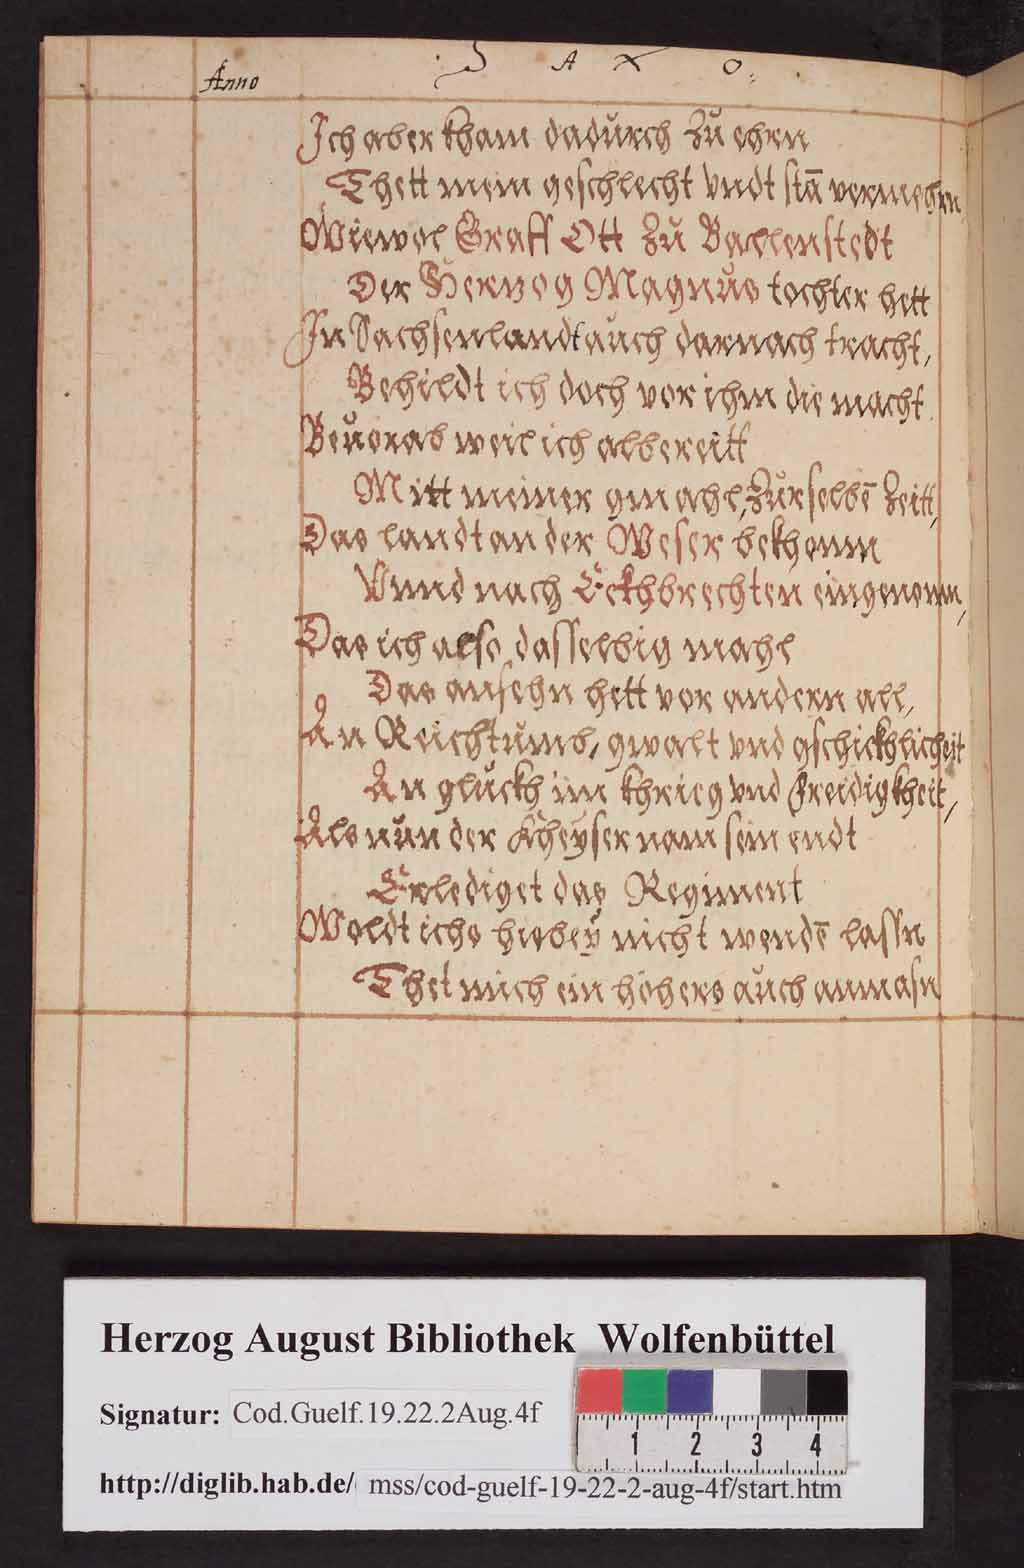 S A X O.
Anno
Ich aber kham dadurch zu ehrn
Thett mein geschlecht vndt stā vermehrn
Wiewol Graff Ott zu Ballenstedt
Der Herzog Magnus tochter hett
In Sachsenlandt auch darnach tracht,
Behildt ich doch vor ihm die macht.
Beuorab weil ich albereitt
Mitt meiner gmahl, zur selbē Zeitt,
Das landt an der Weser bekhomn
Vnnd nach Eckhbrechten eingenomn,
Das ich also dasselbig mahl
Das ansehn hett vor andern all,
An Reichtumb, gwalt vnd gschickhlicheit
An gluckh im khrieg vnd Freidigkheit,
Als nun der Kheyser nam sein endt
Erlediget das Regiment
Woldt ichs hiebey nicht wendē lassn
Thet mich ein höhers auch anmasn
Herzog August Bibliothek Wolfenbüttel
Signatur: Cod.Guelf.19.22.2Aug.4f
1 2 3 4
http://diglib.hab.de/ mss/cod-guelf-19-22-2-aug-4f/start.htm